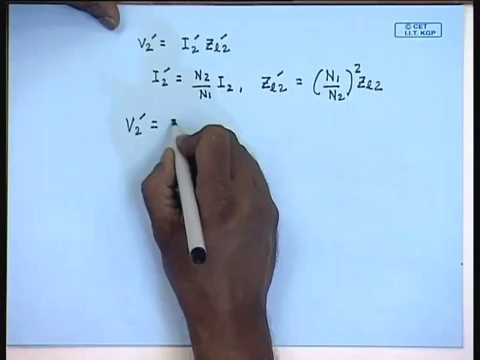 © CET
I.I.T. KGP
V₂′ = I₂′ Zℓ₂′
I₂′ = N₂/N₁ I₂, Zℓ₂′ = (N₁/N₂)² Zℓ₂
V₂′ =